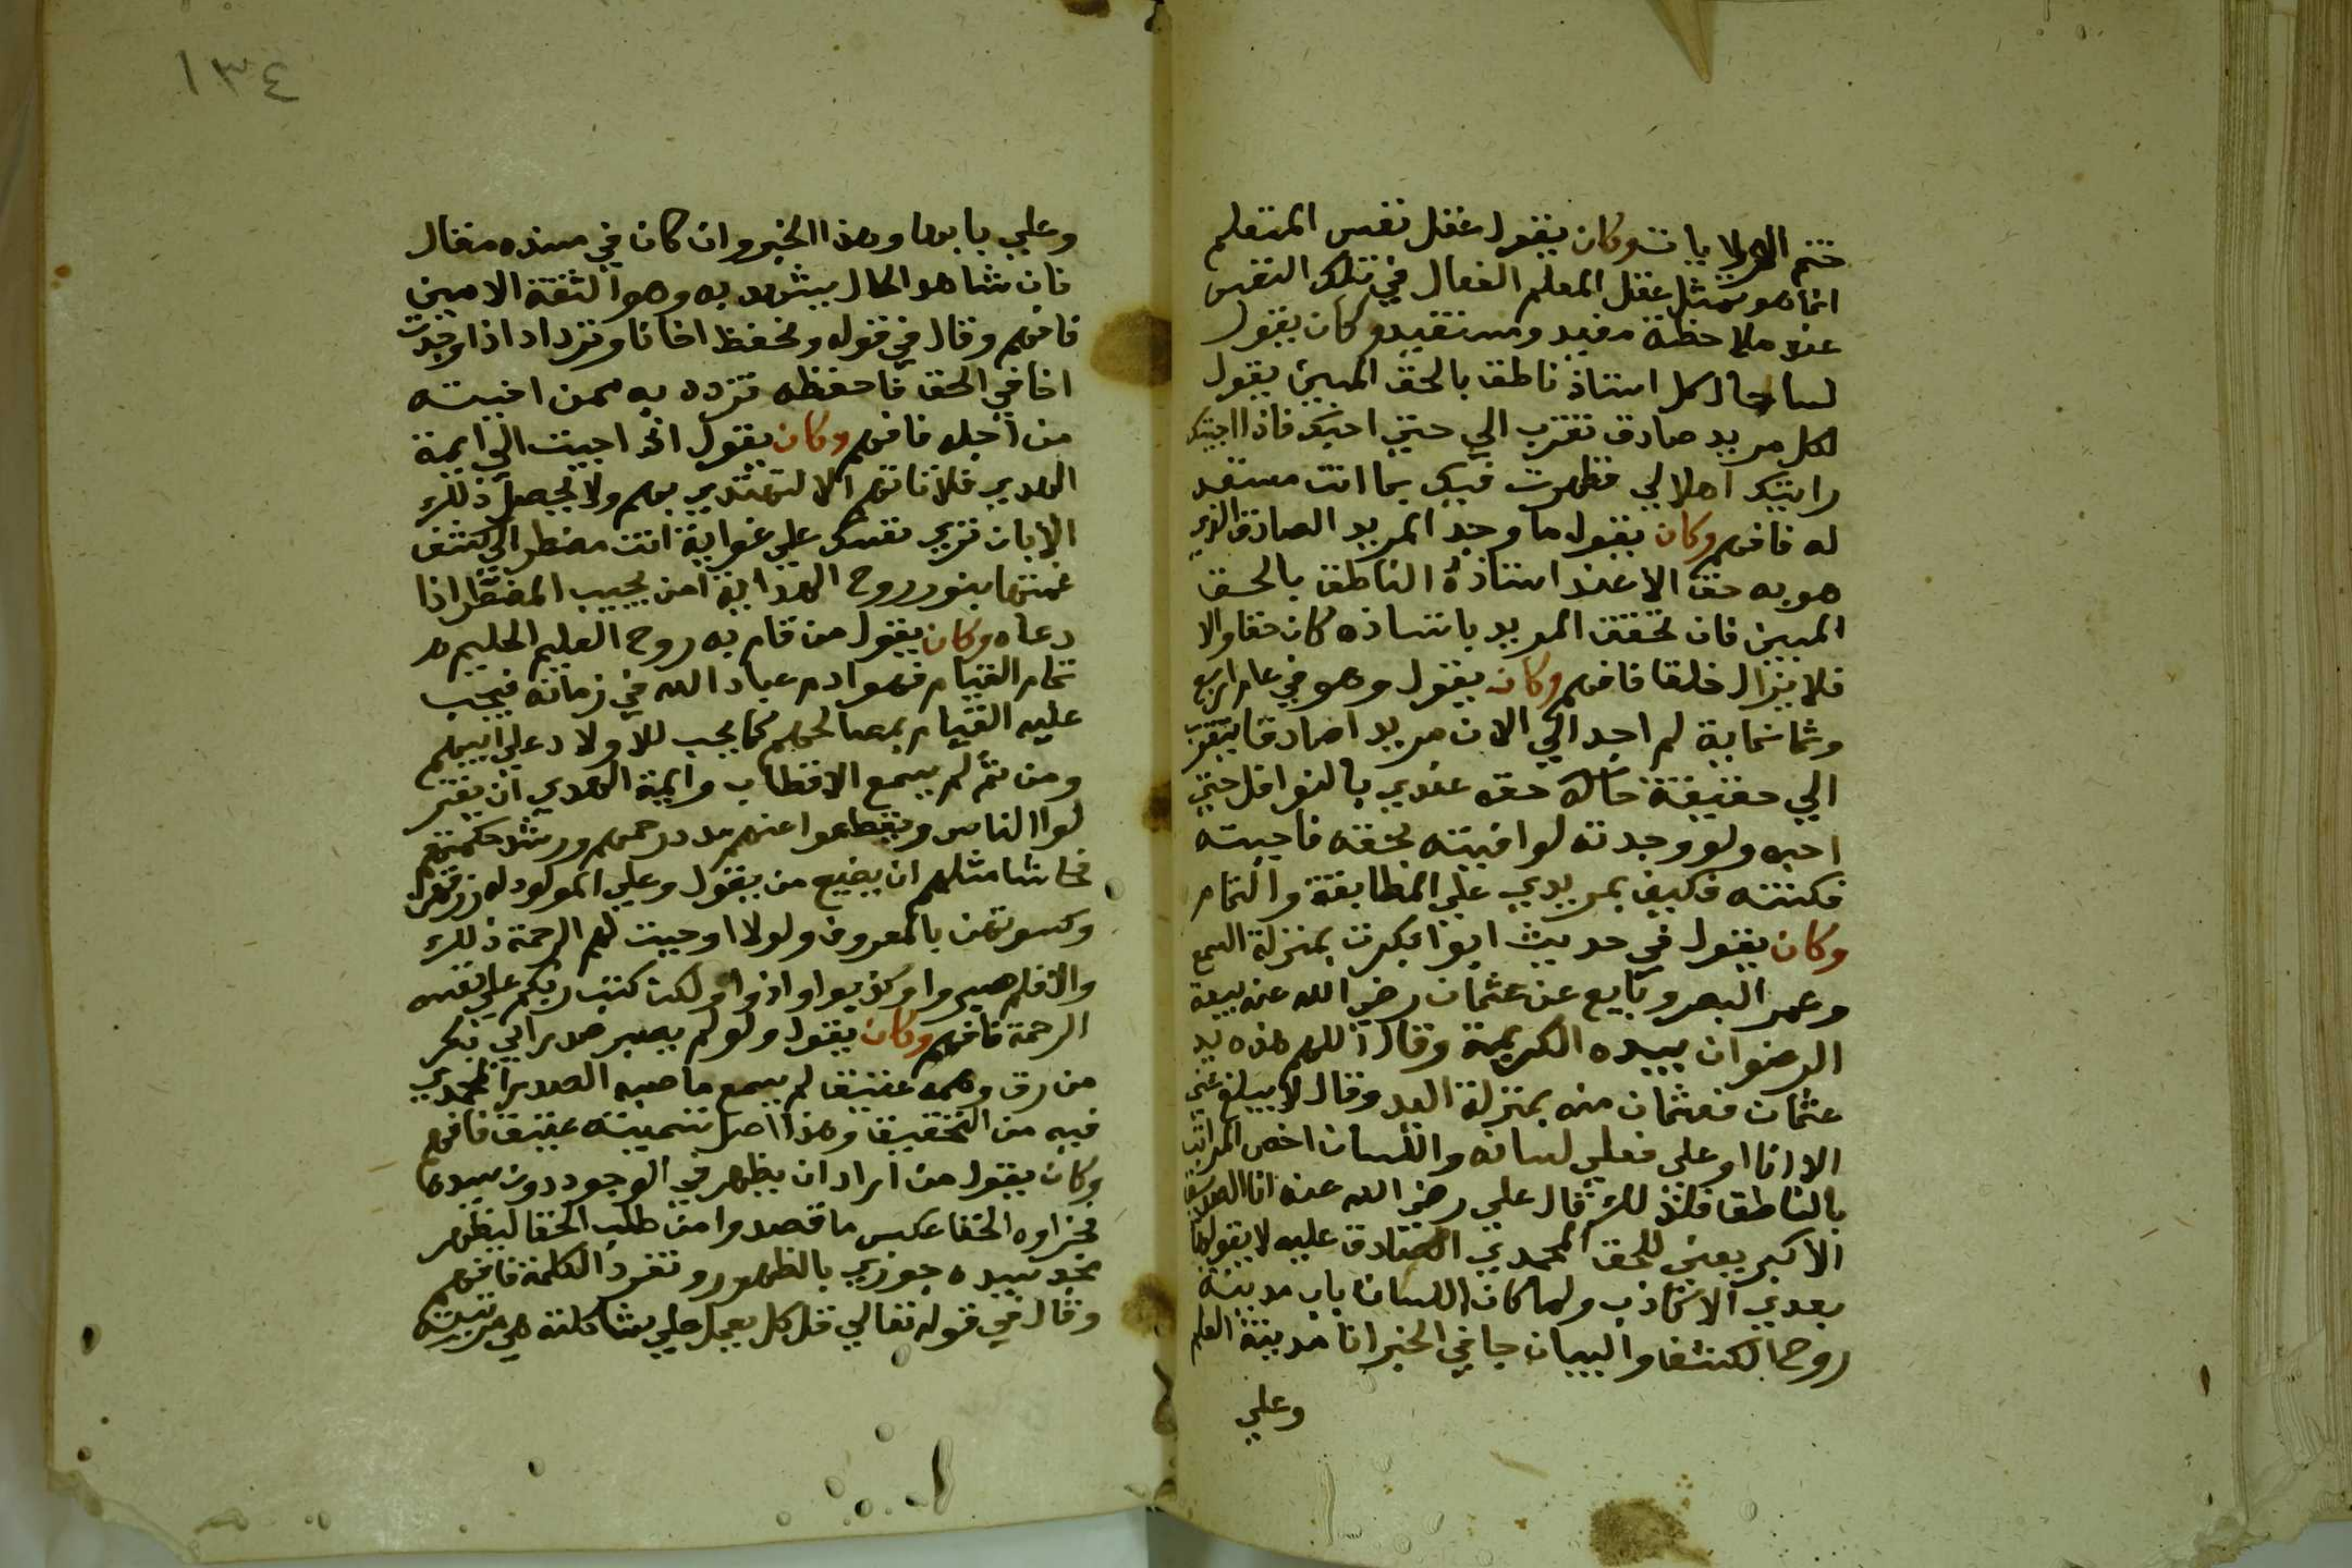 ختم الولايات وكان يقول عقل نفس المتعلم
انما هو تمثل عقل المعلم الفعال في تلك النفس
عند ملاحظة مفيد ومستفيد وكان يقول
لسان حال كل استاذ ناطق بالحق المبين يقول
لكل مريد صادق تقرب الي حتي احبك فاذا احببتك
رايتك اهلا لي فظهرت فيك بما انت مستعد
له فافهم وكان يقول ما وجد المريد الصادق الذي
هو به حق الا عند استاذه الناطق بالحق
المبين فان تحقق المريد باستاذه كان حقا والا
فلا يزال خلقا فافهم وكان يقول وهو في عام اربع
وثمانماية لم اجد الي الان مريدا صادقا يتقرب
الي حقيقة حقه عندي بالنوافل حتي
احبه ولو وجدته لوافيته بحقه فاحببته
فكنته فكيف بمريدي علي المطابقة والتمام
وكان يقول في حديث ابو بكر بمنزلة السمع
وعمر البصر وبايع عن عثمان رضي الله عنه بيعة
الرضوان بيده الكريمة وقال اللهم هذه يد
عثمان فعثمان منه بمنزلة اليد وقال لا يبلغ عني
الا انا او علي فعلي لسانه واللسان اخص المراتب
بالناطق فلذلك قال علي رضي الله عنه انا الصديق
الاكبر يعني للحق المحمدي الصادق عليه لا يقولها
بعدي الا كاذب ولما كان اللسان باب مدينة
روح الكشف والبيان جا في الخبر انا مدينة العلم
وعلي
١٣٤
وعلي بابها وهذا الخبر وان كان في سنده مقال
فان شاهد الحال يشهد به وهو الثقة الامين
فافهم وقال في قوله ونحفظ اخانا ونزداد اذا وجدت
اخا في الحق فاحفظه تزدد به ممن احببته
من اجله فافهم وكان يقول اذا جيت الي ايمة
الهدي فلا تاتهم الا لتهتدي بهم ولا يحصل ذلك
الا بان تري نفسك علي غواية انت مضطر الي كشف
غمتها بنور روح الهداية امن يجيب المضطر اذا
دعاه وكان يقول من قام به روح العليم الحليم
تمام القيام فهو ادم عباد الله في زمانه فيجب
عليه القيام بمصالحهم كما يجب للاولاد علي ابيهم
ومن ثم لم يسمع الاقطاب وايمة الهدي ان يعتز
لوا الناس ويقطعوا عنهم مدد رحمتهم ورشد حكمتهم
فحاشا مثلهم ان يضيع من يقول وعلي المولود له رزقهن
وكسوتهن بالمعروف ولولا اوجبت لهم الرحمة ذلك
والا فلم صبروا وكذبوا واوذوا ولكن كتب ربكم علي نفسه
الرحمة فافهم وكان يقول ولو لم يصير صدر ابي بكر
من رق وهمه عتيق لم يسمع ما صبه الصدر المحمدي
فيه من التحقيق وهذا اصل تسميته عتيق فافهم
وكان يقول من اراد ان يظهر في الوجود دون سيده
فجزاوه الخفا عكس ما قصد وامن طلب الخفا ليظهر
مجد سيده جوزي بالظهور ونفوذ الكلمة فافهم
وقال في قوله تعالي قل كل يعمل علي شاكلته هي مرتبته